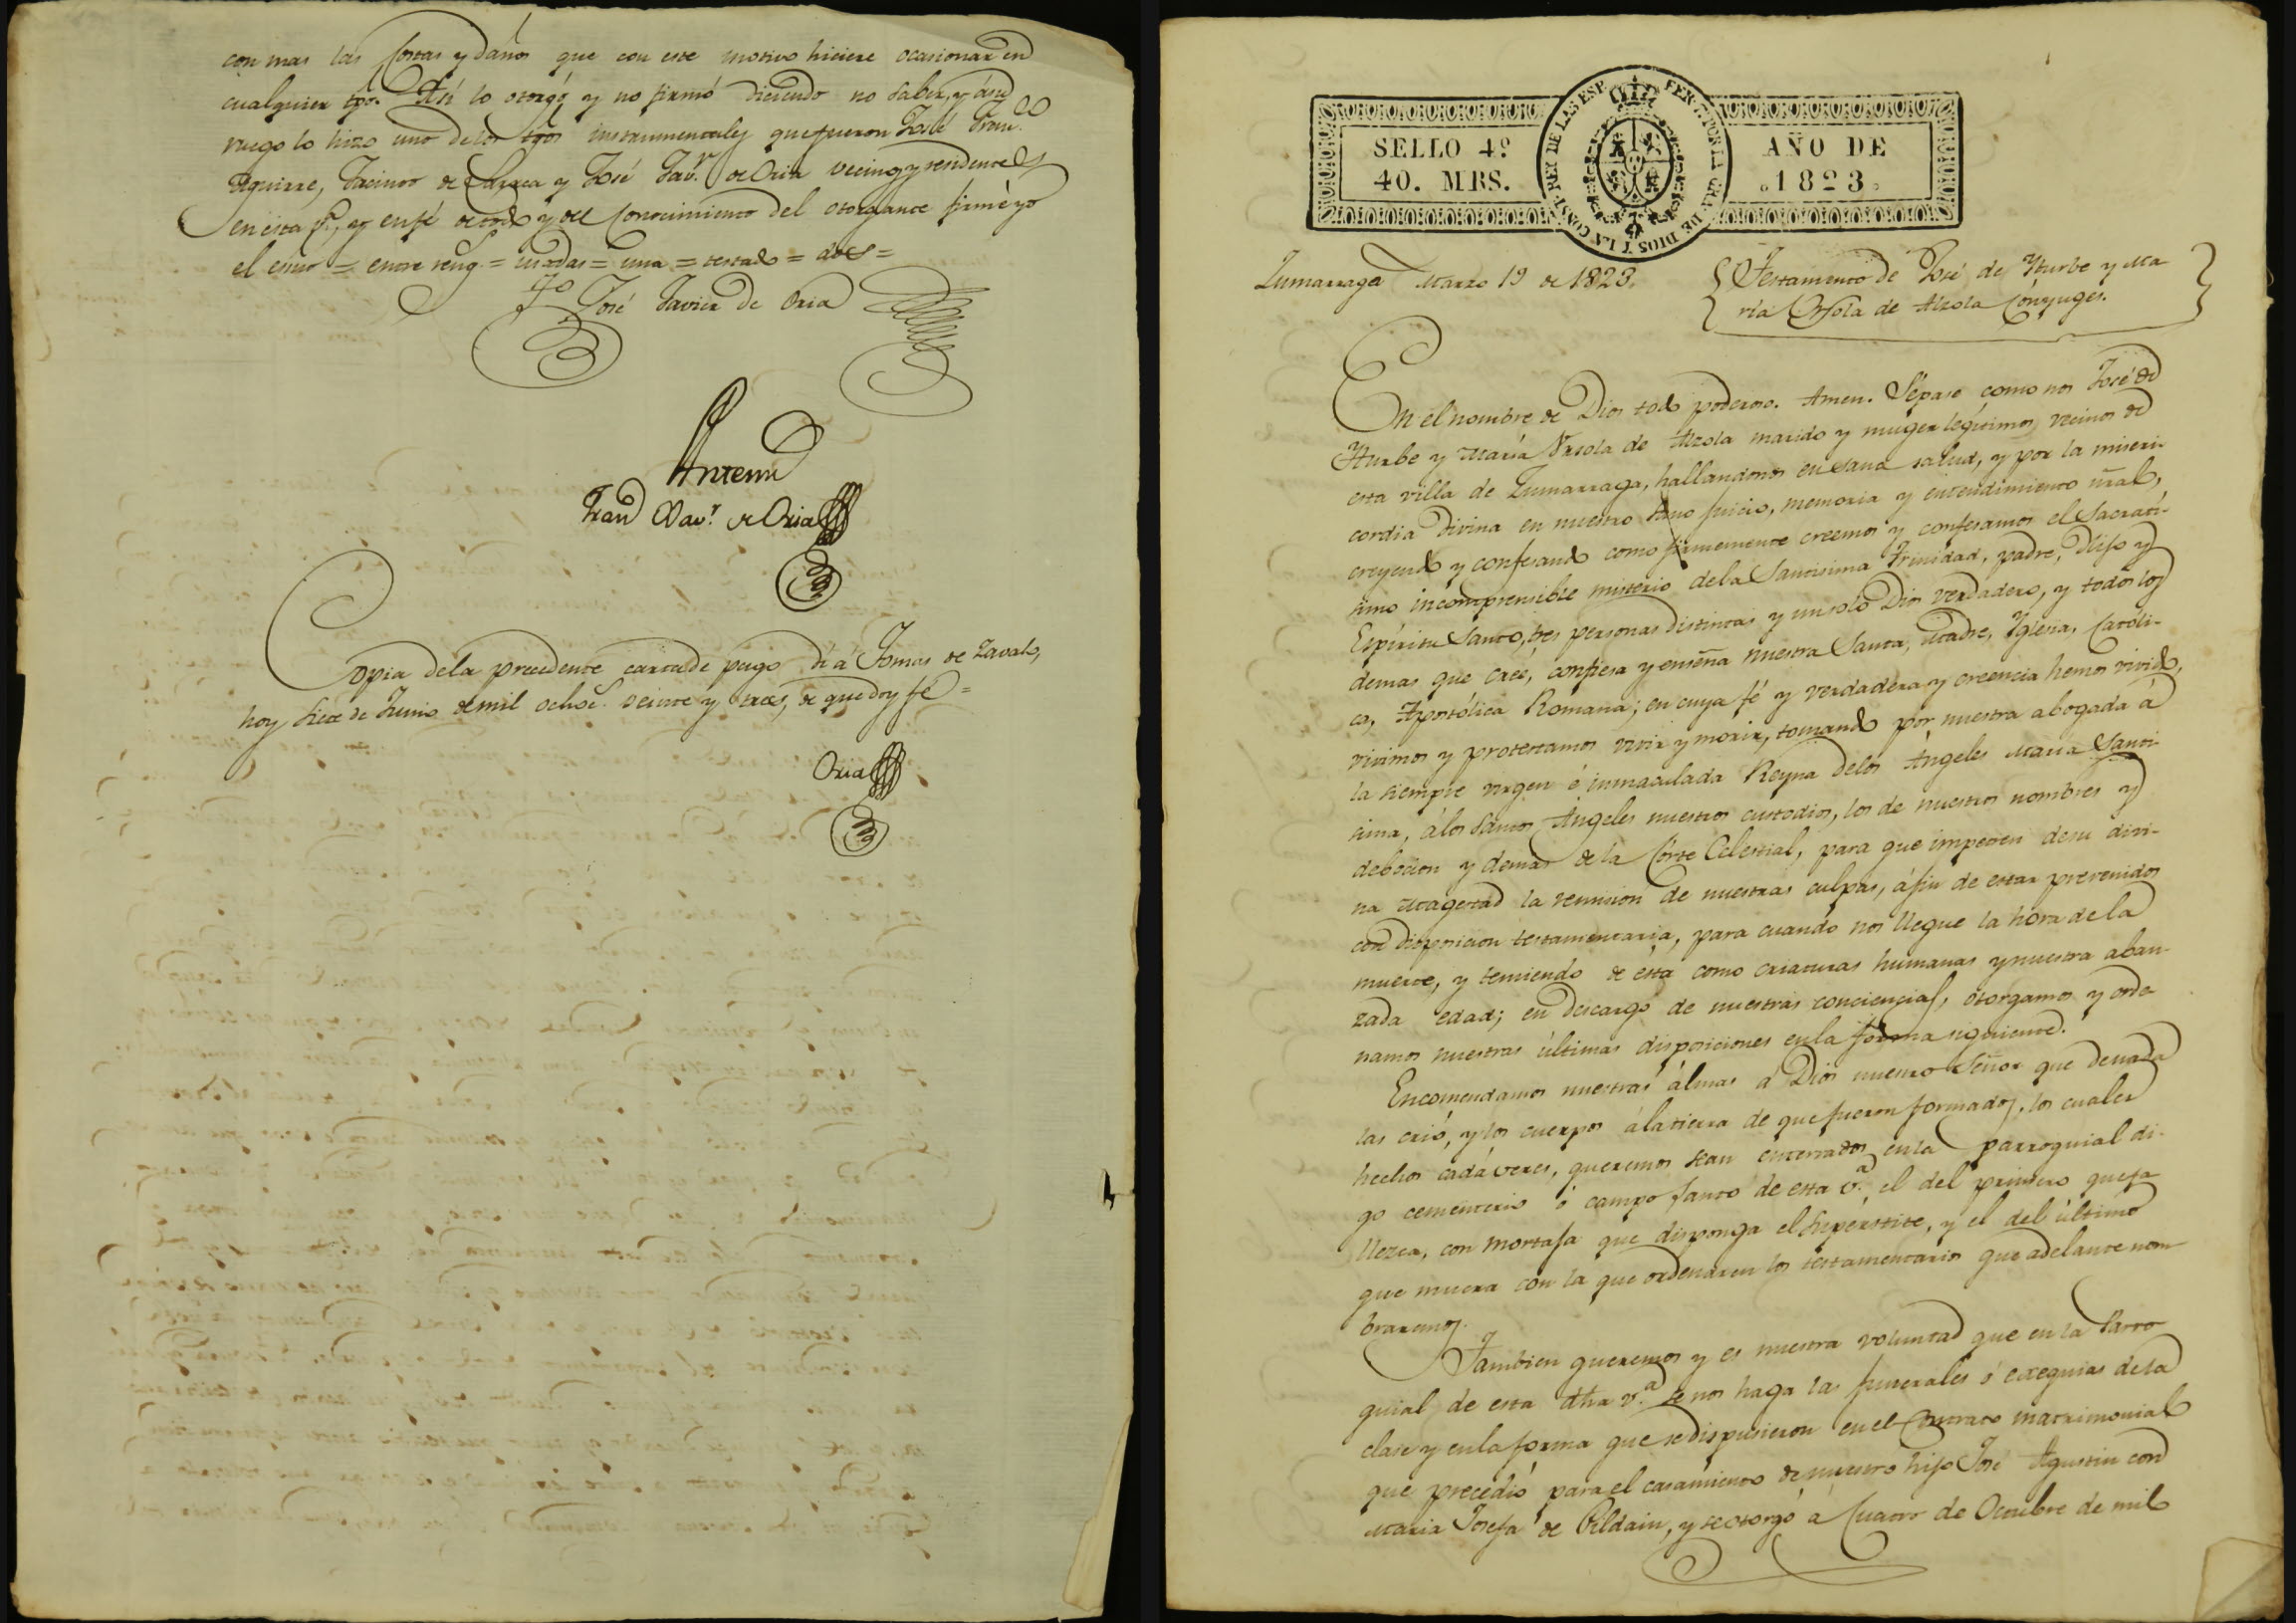 con mas las Costas y daños que con este motivo hiciere ocasionar en
cualquier tpo. Asi lo otorgó y no firmó diciendo no saber, y á su
ruego lo hizo uno de los tgos instrumentales que fueron José Franco
Aguirre, Jacinto de Larrea y José Javr. de Oria vecinos y residentes
en esta va, y en fé de todo y del Conocimiento del otorgante firmé yo
el esno = entre reng.s = = una = testado = dos =
To José Javier de Oria
Antemi
Fran Xavr. de Oria
Copia dela precedente carta de pago dí á Tomas de Zavalo,
hoy siete de Junio de mil ochoc. veinte y tres, de que doy fé =
Oria
FER. 7. POR LA GRA. DE DIOS Y LA CONST. REY DE LAS ESP.
SELLO 4º
40. MRS.
AÑO DE
1823.
Zumarraga Marzo 19 de 1823.
Testamento de José de Yturbe y Ma
ría Ursola de Alzola Cónyuges.
En el nombre de Dios todo poderoso. Amen. Sépase como nos José de
Yturbe y María Ursola de Alzola marido y muger legítimos, vecinos de
esta villa de Zumarraga, hallandonos en sana salud, y por la miseri-
cordia Divina en nuestro sano juicio, memoria y entendimiento ñral,
creyendo y confesando como firmemente creemos y confesamos el Sacratí-
simo incomprensible misterio dela Santisima Trinidad, padre, Hijo y
Espíritu Santo, tres personas distintas y un solo Dios verdadero, y todos los
demas que cree, confiesa y enseña nuestra Santa, Madre, Yglesia, Católi-
ca, Apostólica Romana; en cuya fé y verdadera y creencia hemos vivido,
vivimos y protestamos vivir y morir, tomando por nuestra abogada á
la siempre virgen é inmaculada Reyna delos Angeles Maria Santi-
sima, álos Santos Angeles nuestros custodios, los de nuestros nombres y
debocion y demas de la Córte Celestial, para que impetren desu divi-
na Magestad la remision de nuestras culpas, á fin de estar prevenidos
con disposicion testamentaria, para cuando nos llegue la hora dela
muerte, y temiendo de esta como criaturas humanas y nuestra aban-
zada edad; en descargo de nuestras conciencias, otorgamos y orde
namos nuestras últimas disposiciones en la forma siguiente.
Encomendamos nuestras álmas á Dios nuestro Señor que denada
las crió, y los cuerpos á la tierra de que fueron formados, los cuales
hechos cadáveres, queremos sean enterrados en la parroquial di-
go cementerio ó campo santo de esta v.a el del primero que fa
llezca, con mortaja que disponga el supérstite, y el del último
que muera con la que ordenaren los testamentarios que adelante nom-
braremos.
Tambien queremos y es nuestra voluntad que en la Parro
quial de esta dha v.a se nos haga las funerales ó exequias de la
clase y en la forma que se dispusieron en el Contrato matrimonial
que precedió para el casamiento de nuestro hijo José Agustin con
Maria Josefa de Pildain, y se otorgó á Cuatro de Octubre de mil